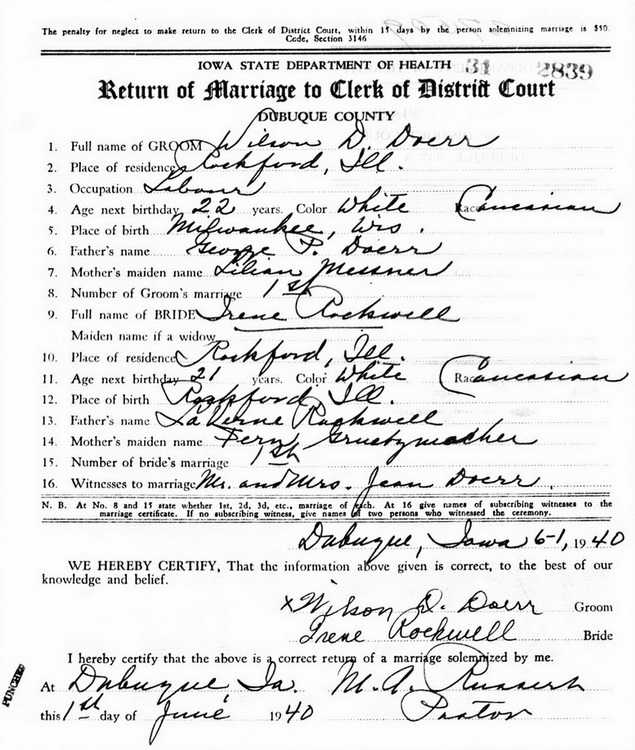 The penalty for neglect to make return to the Clerk of District Court, within 15 days by the person solemnizing marriage is $50.
Code, Section 3146
IOWA STATE DEPARTMENT OF HEALTH 31 2839
Return of Marriage to Clerk of District Court
DUBUQUE COUNTY
1. Full name of GROOM Wilson D. Doerr
2. Place of residence Rockford, Ill.
3. Occupation Labour
4. Age next birthday 22 years. Color White Race Caucasian
5. Place of birth Milwaukee, Wis.
6. Father's name George P. Doerr
7. Mother's maiden name Lilian Messner
8. Number of Groom's marriage 1st
9. Full name of BRIDE Irene Rockwell
Maiden name if a widow
10. Place of residence Rockford, Ill.
11. Age next birthday 21 years. Color White Race Caucasian
12. Place of birth Rockford, Ill.
13. Father's name LaVerne Rockwell
14. Mother's maiden name Fern
15. Number of bride's marriage 1st
16. Witnesses to marriage Mr. and Mrs. Jean Doerr
N. B. At No. 8 and 15 state whether 1st, 2d, 3d, etc., marriage of each. At 16 give names of subscribing witnesses to the
marriage certificate. If no subscribing witness, give names of two persons who witnessed the ceremony.
Dubuque, Iowa 6-1, 1940
WE HEREBY CERTIFY, That the information above given is correct, to the best of our
knowledge and belief.
x Wilson D. Doerr Groom
Irene Rockwell Bride
I hereby certify that the above is a correct return of a marriage solemnized by me.
At Dubuque Ia. M. A.
this 1st day of June 1940 Pastor
PUNCHED